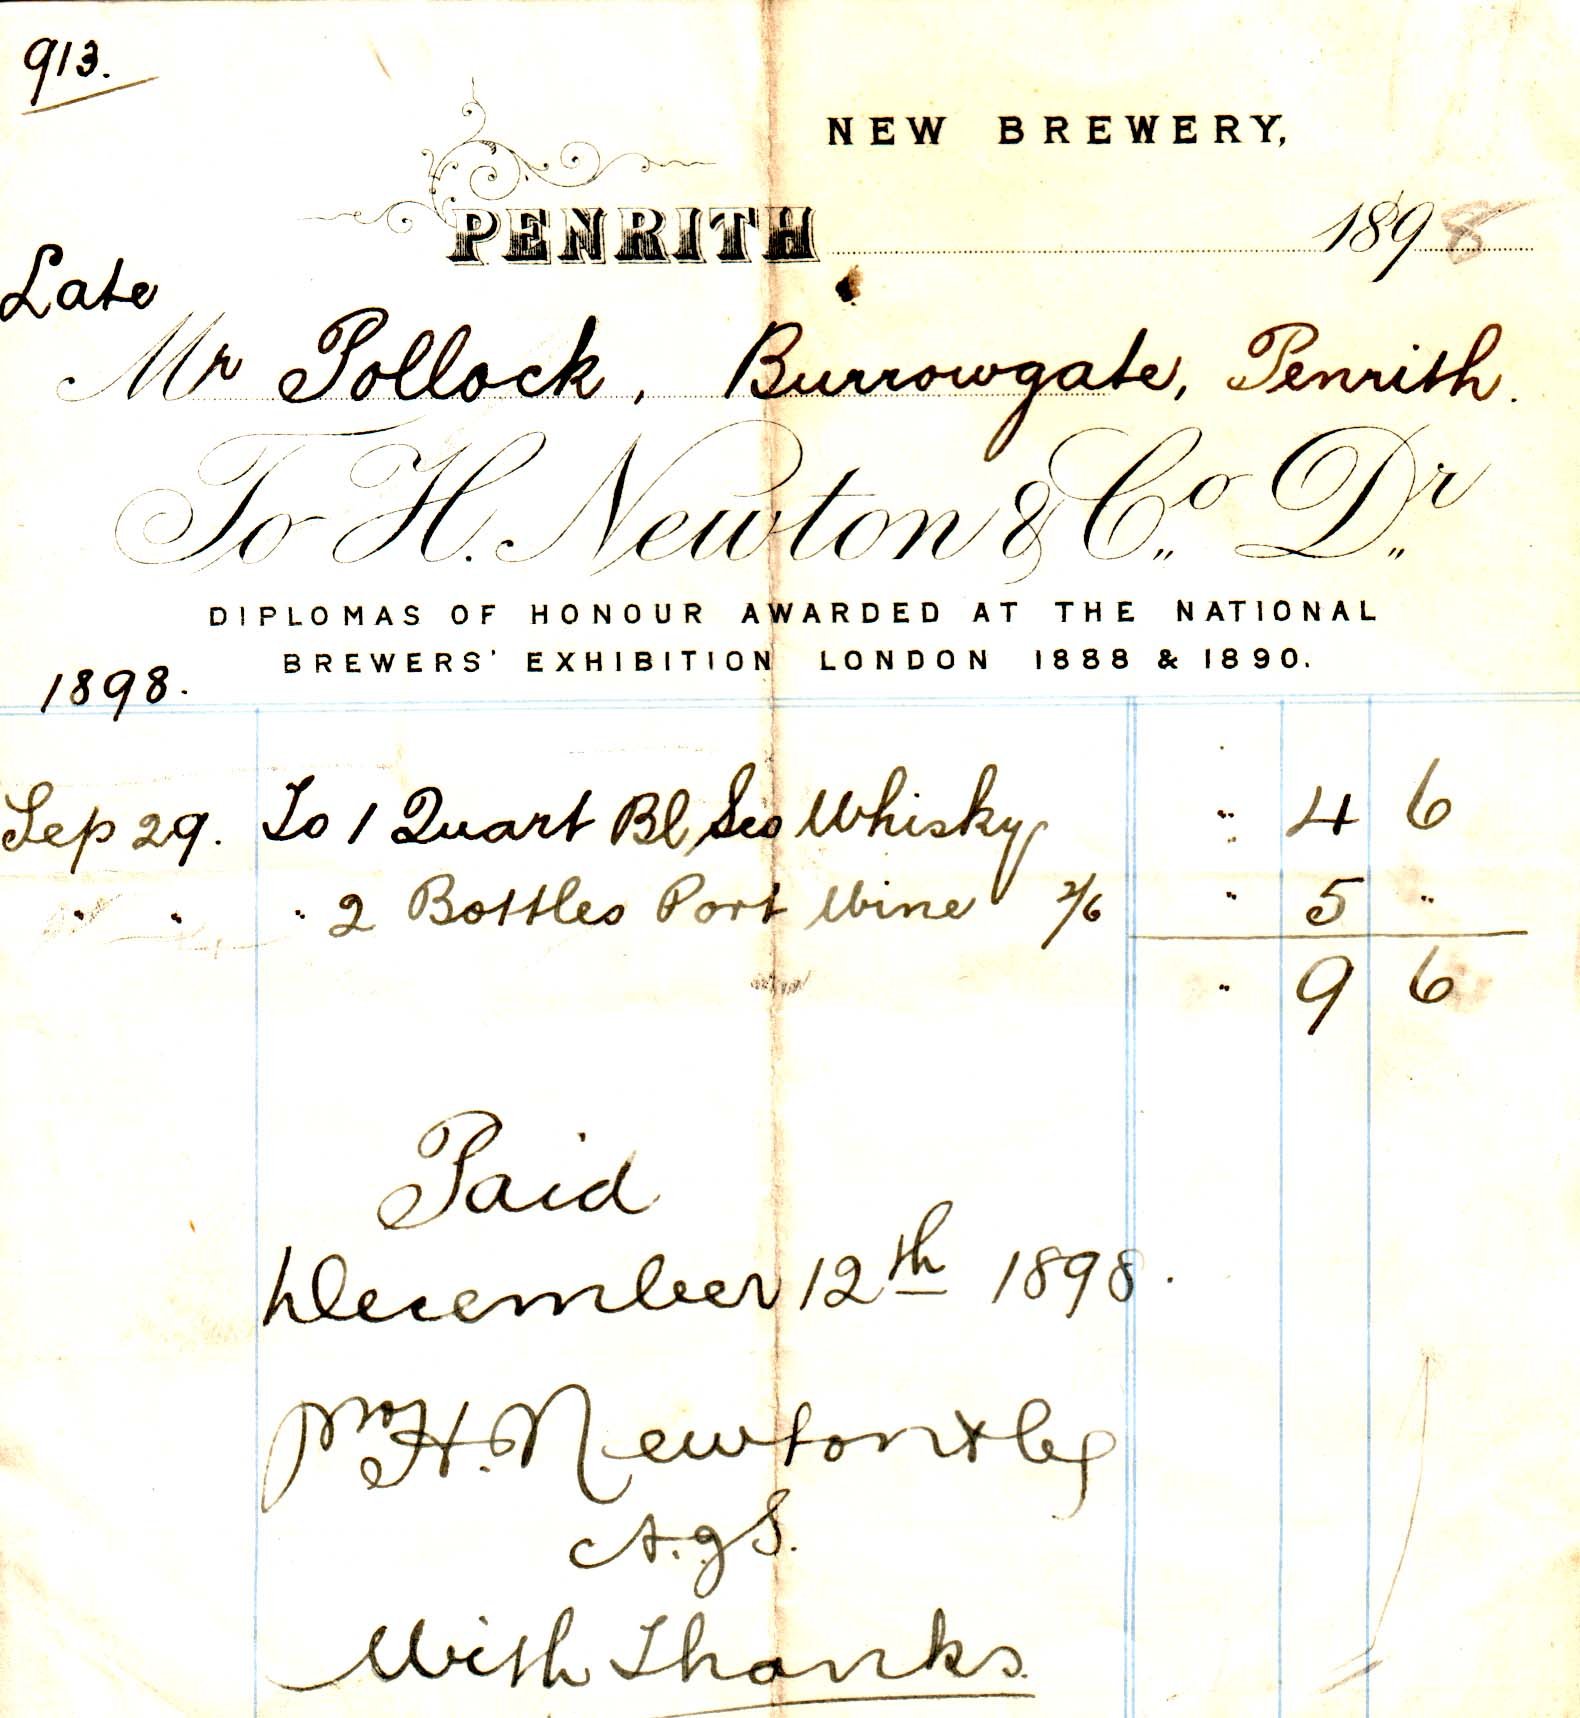 913.
NEW BREWERY,
PENRITH 1898
Late
Mr Pollock, Burrowgate, Penrith.
To H. Newton & Co. Dr.
DIPLOMAS OF HONOUR AWARDED AT THE NATIONAL
BREWERS' EXHIBITION LONDON 1888 & 1890.
1898.
Sep 29. To 1 Quart Bl Sco Whisky " 4 6
" " " 2 Bottles Port Wine 2/6 " 5 "
" 9 6
Paid
December 12th 1898.
H. Newton & Co
A.g S.
With Thanks.